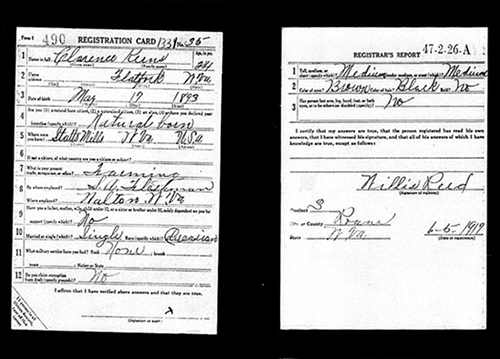 Form 1 490 REGISTRATION CARD 1331 No. 35
1 Name in full Clarence Keens Age, in yrs. 24
2 Home address Flatfork W Va
3 Date of birth May 17 1893
4 Natural born
5 Where were you born? Statts Mills W Va U.S.a
6 If not a citizen, of what country are you a citizen or subject?
7 What is your present trade, occupation, or office? Farming
8 By whom employed? S. A. Fleshman
Where employed? Walton W Va
9 Have you a father, mother, wife, child under 12, or a sister or brother under 12, solely dependent on you for support (specify which)? No
10 Married or single (which)? Single Race (specify which)? Caucasian
11 What military service have you had? Rank None ; branch
years ; Nation or State
12 Do you claim exemption from draft (specify grounds)? No
I affirm that I have verified above answers and that they are true.
x
(Signature or mark)
REGISTRAR'S REPORT 47-2-26-A
1 Tall, medium, or short (specify which)? Medium Slender, medium, or stout (which)? Medium
2 Color of eyes? Brown Color of hair? Black Bald? No
3 Has person lost arm, leg, hand, foot, or both eyes, or is he otherwise disabled (specify)? No
I certify that my answers are true, that the person registered has read his own
answers, that I have witnessed his signature, and that all of his answers of which I have
knowledge are true, except as follows:
Willis Reed
(Signature of registrar)
Precinct 3
City or County Roane
State W Va 6-5-1917
(Date of registration)